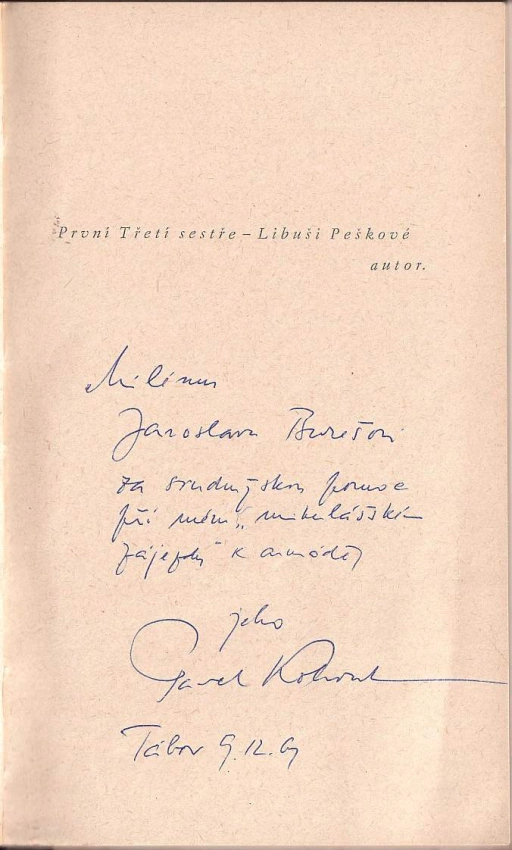 První Třetí sestře – Libuši Peškové
autor.
Milému
Jaroslavu Burešovi
za pomoc
při mém „mikulášském
zájezdu“ k armádě
jeho
Pavel Kohout
Tábor 9.12.61